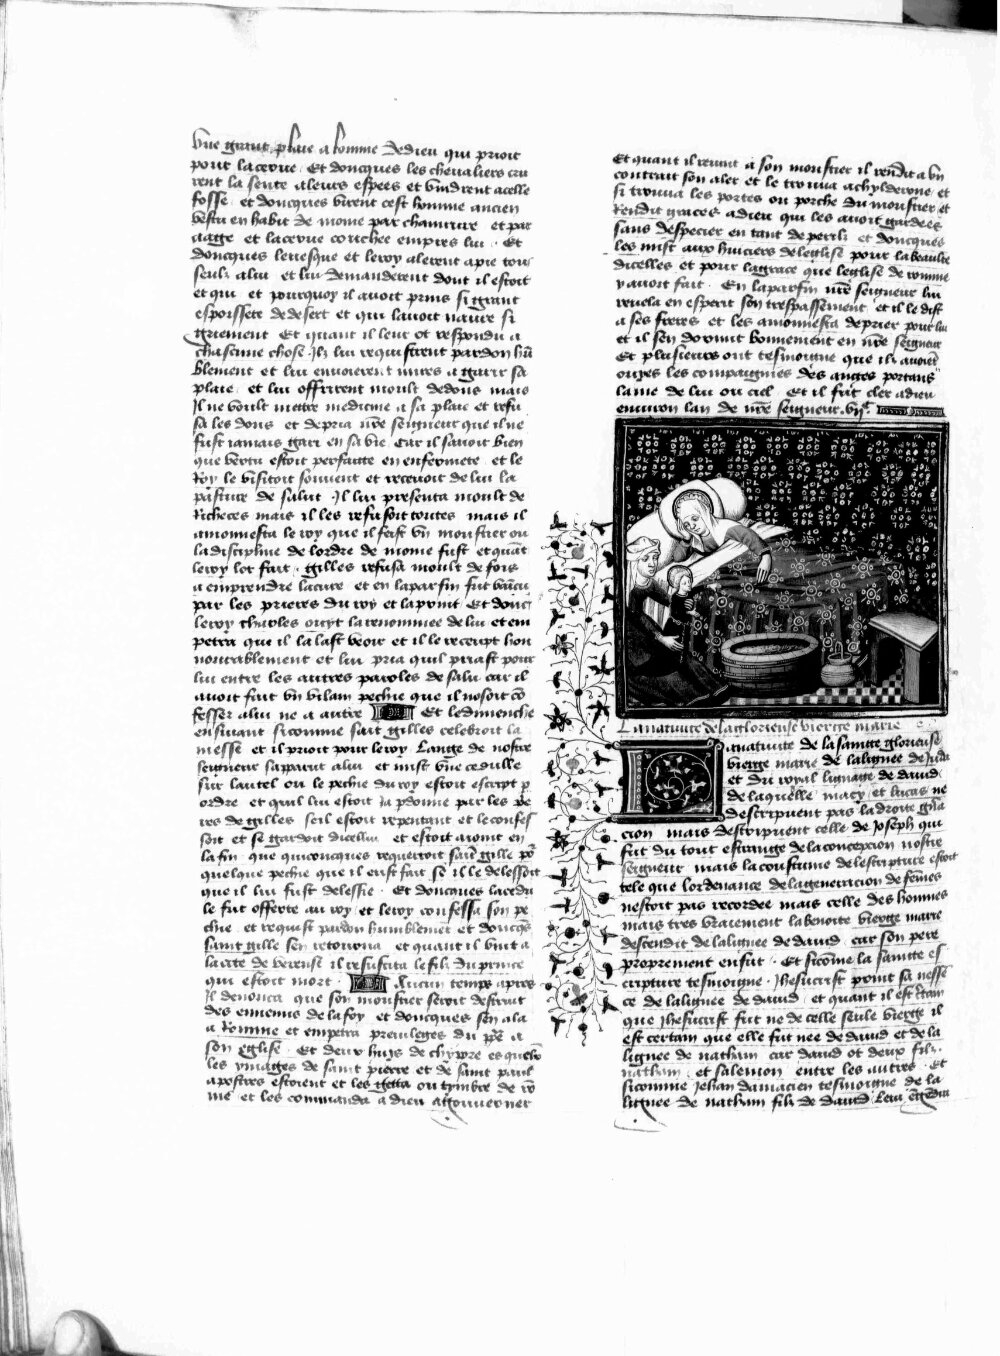 Vne grant plaie a lomme dedieu qui prioit
pour lacerue · Et doncques les cheualiers cui
rent la sente aleurs espees et vindrent acelle
fosse · et doncques virent cest homme ancien
vestu en habit de moine par chanure et par
aage et lacerue couchee empres lui · Et
doncques leuesque et leroy alerent apie tous
seulz alui et lui demanderent dont il estoit
et qui et pourquoy il auoit prins si grant
espoissete dedesert et qui lauoit naure si
griefment Et quant il leur ot respondu a
chascune chose · Ilz lui requistrent pardon hũ
blement et lui enuoierent mires a garir sa
plaie · et lui offrirent moult dedons mais
Il ne voult mettre medicine a sa plaie et refu
sa les dons et depria nr̃e seigneur que il ne
fust iamais gari en sa vie Car il sauoit bien
que vertu estoit perfaitte en enfermete · et le
Roy le visitoit souuent et receuoit de lui la
pasture de salut · Il lui presenta moult de
Richeces mais il les refusoit toutes mais il
amonnesta le roy que il feist vn moustier ou
la discipline de lordre de moine fust et quãt
leroy lot fait · gilles refusa moult de fois
a emprendre lacure et en laparfin fut vaincu
par les prieres du roy et la print Et donc
leroy charles ouyt la renommee de lui et em
petra que il la last veoir et il le receupt hon
nourablement et lui pria quil priast pour
lui entre les autres paroles de salu car il
auoit fait vn vilain pechie que il nosoit cõ
fesser alui ne a autre Et ledimenche
ensuiuant sicomme saint gilles celebroit la
messe et il prioit pour leroy · Lange de nostre
seigneur sapparut alui et mist vne cedulle
sur lautel ou le pechie du roy estoit escript p
ordre et quil lui estoit Ia pdonne par les pe
res de gilles seil estoit repentant et le confes
soit et se gardoit dicellui et estoit aioint en
la fin que quiconques requerroit saint gille po
quelque pechie que il eust fait se il le delessoit
que il lui fust delessie · Et doncques lacedu
le fut offerte au roy et leroy confessa son pe
chie et requist pardon humblement et doncqs
saint gille sen retourna et quant il vint a
lacite de verense il resuscita le filz du prince
qui estoit mort · Aucun temps apres
Il denonca que son moustier seroit destruit
des ennemis de la foy et doncques sen ala
a Romme et empetra preuileges du pp̃e a
son eglise Et deux huys de chypre es quelx
les ymages de saint pierre et de saint paul
apostres estoient et les getta ou tymbre de rõ
me et les commanda a dieu agouuerner
Et quant il reuint a son moustier il rendi a vn
contrait son aler et le trouua achylderone et
si trouua les portes ou porche du moustier et
Rendit graces a dieu qui les auoit gardees
sans despecier en tant de perilz et doncques
les mist aux huiciers de leglise pour la beaulte
dicelles et pour la grace que leglise de romme
y auoit fait · En laparfin nr̃e seigneur lui
reuela en esperit son trespassement et il le dist
a ses freres et les amonnesta de prier pour lui
et il sen dormit bonnement en nr̃e seigneur
Et plusieurs ont tesmoigne que ilz auoiẽt
ouyes les compaignies des anges portans
lame de lui ou ciel · Et il fut cler a dieu
enuiron lan de nr̃e seigneur . vijᶜ
La natiuite de la glorieuse vierge marie
La natiuite de la sainte glorieuse
vierge marie de la lignee de Juda
et du royal lignage de dauid
de laquelle macy et lucas ne
descripuent pas la droite gña
cion mais descripuent celle de Joseph qui
fut du tout estrange de la concepcion nostre
seigneur mais la coustume de lescripture estoit
tele que lordenance de la generacion de fẽmes
nestoit pas recordee mais celle des hommes
mais tres vraiement la benoite vierge marie
descendit de la lignee de dauid car son pere
proprement en fut · Et sicõme la sainte es
cripture tesmoigne · Jhesucrist print sa nessẽ
ce de la lignee de dauid et quant il est certain
que Jhesucrist fut ne de celle seule vierge il
est certain que elle fut nee de dauid et de la
lignee de nathan car dauid ot deux filz ·
nathan et salemon entre les autres · Et
sicomme Jehan damacien tesmoigne de la
lignee de nathan filz de dauid Leui engendra